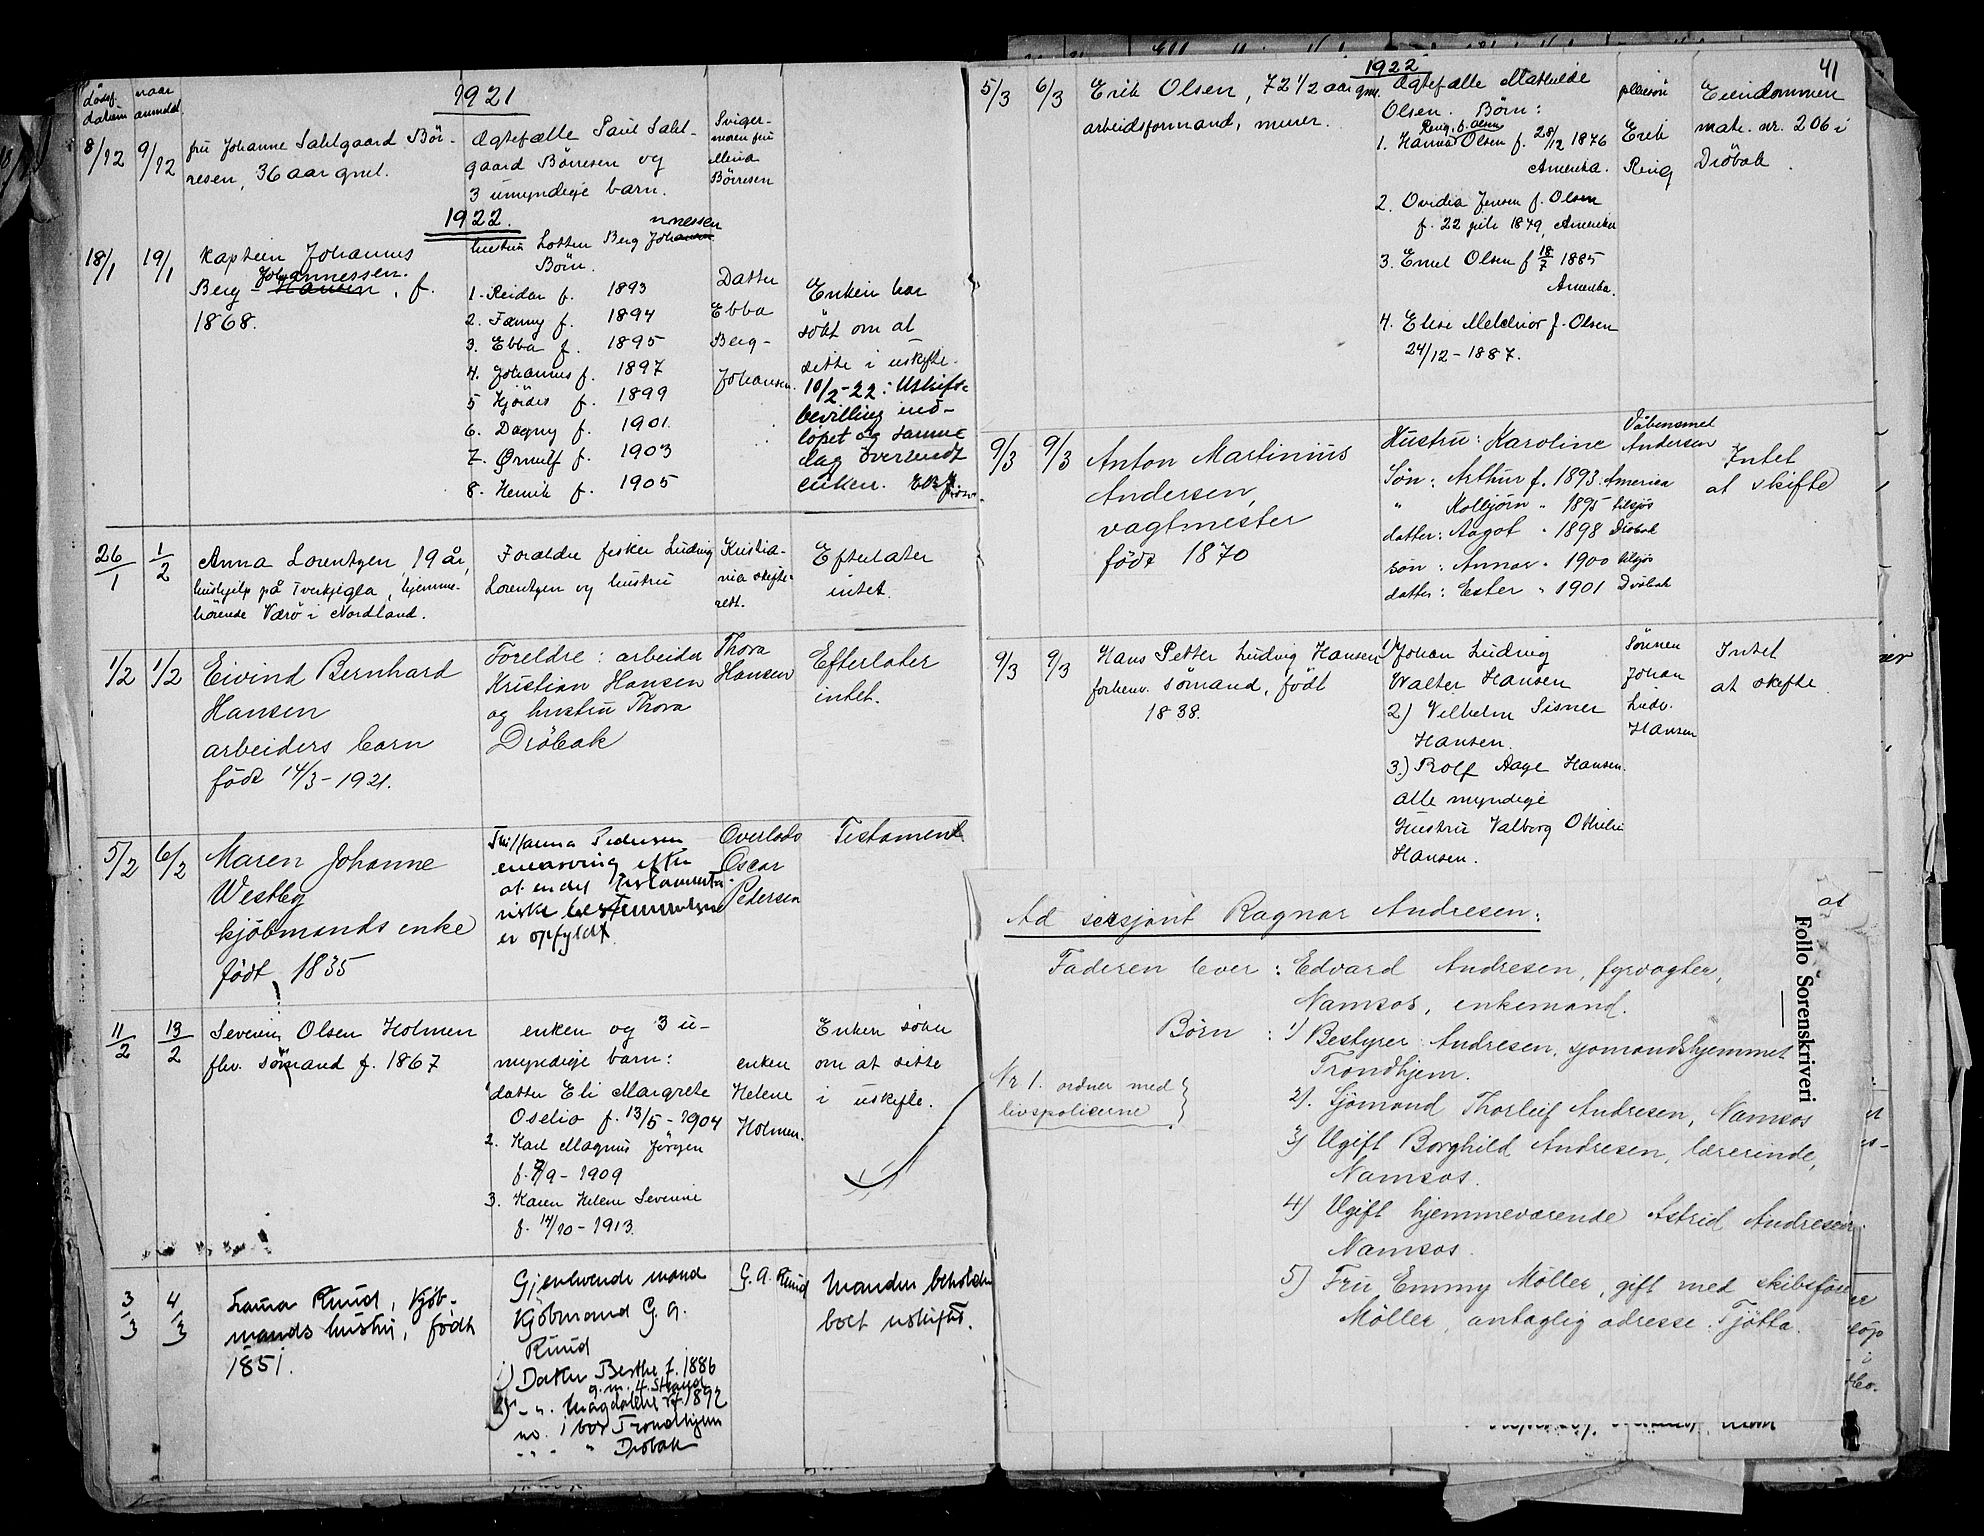 dødsf. datum
naar anmeldt
1921
8/12 9/12 fru Johanne Sahlgaard Bör-
resen, 36 aar gml.
Ægtefælle Paul Sahl-
gaard Börresen og
3 umyndige barn.
Sviger-
moren fru
Börresen
1922.
18/1 19/1 Kaptein Johannes
Berg Johannessen, f.
1868.
hustru Lotten Berg
Börn.
1. Reidar f. 1893
2. Fanny f. 1894
3. Ebba f. 1895
4. Johannes f. 1897
5 Hjördis f. 1899
6. Dagny f. 1901
7. Ørnulf f. 1903
8. Henrik f. 1905
Datter
Ebba
Berg-
Johansen.
Enken har
sökt om at
sitte i uskifte.
10/2-22: Uskifte-
bevilling ind-
löpet og samme
dag oversendt
enken.
26/1 1/2 Anna Lorentzen, 19 år,
hushjelp på Tverkjegla, hjemme-
hörende Værö i Nordland.
Forældre fisker Ludvig
Lorentzen og hustru
Kristia-
nia skifte-
rett.
Efterlater
intet.
1/2 1/2 Eivind Bernhard
Hansen
arbeiders barn
födt 14/3-1921.
Foreldre: arbeider
Kristian Hansen
og hustru Thora
Dröbak
Thora
Hansen
Efterlater
intet.
5/2 6/2 Maren Johanne
Westby
kjöbmands enke
födt 1835
Hanna Pedersen
enearving efter
at endel testamenta-
riske bestemmelser
er opfyldt.
Overlods
Oscar
Pedersen
Testament
11/2 13/2 Severin Olsen Holmen
fhv. sömand f. 1867
enken og 3 u-
myndige barn:
datter Eli Margrete
Oselio f. 13/5-1904
2. Karl Magnus Jörgen
f. 7/9-1909
3. Karen Helene Severine
f. 14/10-1913.
enken
Helene
Holmen.
Enken söker
om at sitte
i uskifte.
3/3 4/3 Ruud, Kjöb-
mands hustru, födt
1851.
Gjenlevende mand
Kjöbmand G. A.
Ruud
1) Datter Berthe f. 1886
g. m. H. Strand
2) -"- Magdalene f. 1892
no. 1 bor Trondhjem
-"- " Dröbak
G. A. Ruud
Manden beholder
boet uskiftet.
1922
41
5/3 6/3 Erik Olsen, 72 1/2 aar gml.
arbeidsformand, murer.
Ægtefælle Mathilde
Olsen. Börn:
1. Hanna Ring f. Olsen f. 28/12 1876
Amerika.
2. Ovidia Jensen f. Olsen
f. 22 juli 1879, Amerika
3. Emil Olsen f 18/7 1885
Amerika.
4. Elise Melchior f. Olsen
24/12-1887.
pleiesön
Erik
Ring
Eiendommen
matr. nr. 206 i
Dröbak.
9/3 9/3 Anton Martinius
Andersen,
vagtmester
födt 1870
Hustru: Karoline
Sön: Arthur f. 1893. Amerika
" Kolbjörn " 1895 tilsjös
datter: Aagot " 1898 Dröbak
sön: Annar " 1900 tilsjös
datter: Ester " 1901 Dröbak
Våbensmed
Andersen
Intet
at skifte
9/3 9/3 Hans Petter Ludvig Hansen
forhenv. sömand, födt
1838.
1) Johan Ludvig
Walter Hansen
2) Vilhelm Sisner
Hansen.
3.) Rolf Aage Hansen.
alle myndige
Hustru Valborg Othilie
Hansen.
Sönnen
Johan
Ludv.
Hansen
Intet
at skifte.
at
Follo Sorenskriveri
Ad sersjant Ragnar Andresen:
Faderen lever: Edvard Andresen, fyrvogter,
Namsos, enkemand.
Börn: 1) Bestyrer Andresen, sjomandshjemmet
Trondhjem.
Nr 1. ordner med
livspoliserne
2). Sjömand Thorleif Andresen, Namsos
3) Ugift Borghild Andresen, lærerinde,
Namsos.
4) Ugift hjemmeværende Astrid Andresen
Namsos.
5) Fru Emmy Möller, gift med skibsförer
Möller, antaglig adresse: Tjötta.